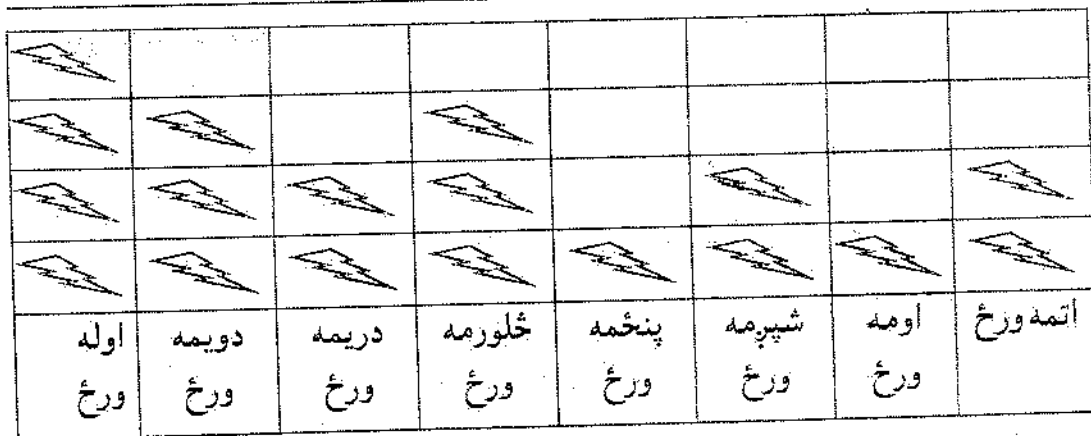 اوله
ورځ
دویمه
ورځ
دریمه
ورځ
څلورمه
ورځ
پنځمه
ورځ
شپږمه
ورځ
اومه
ورځ
اتمه ورځ